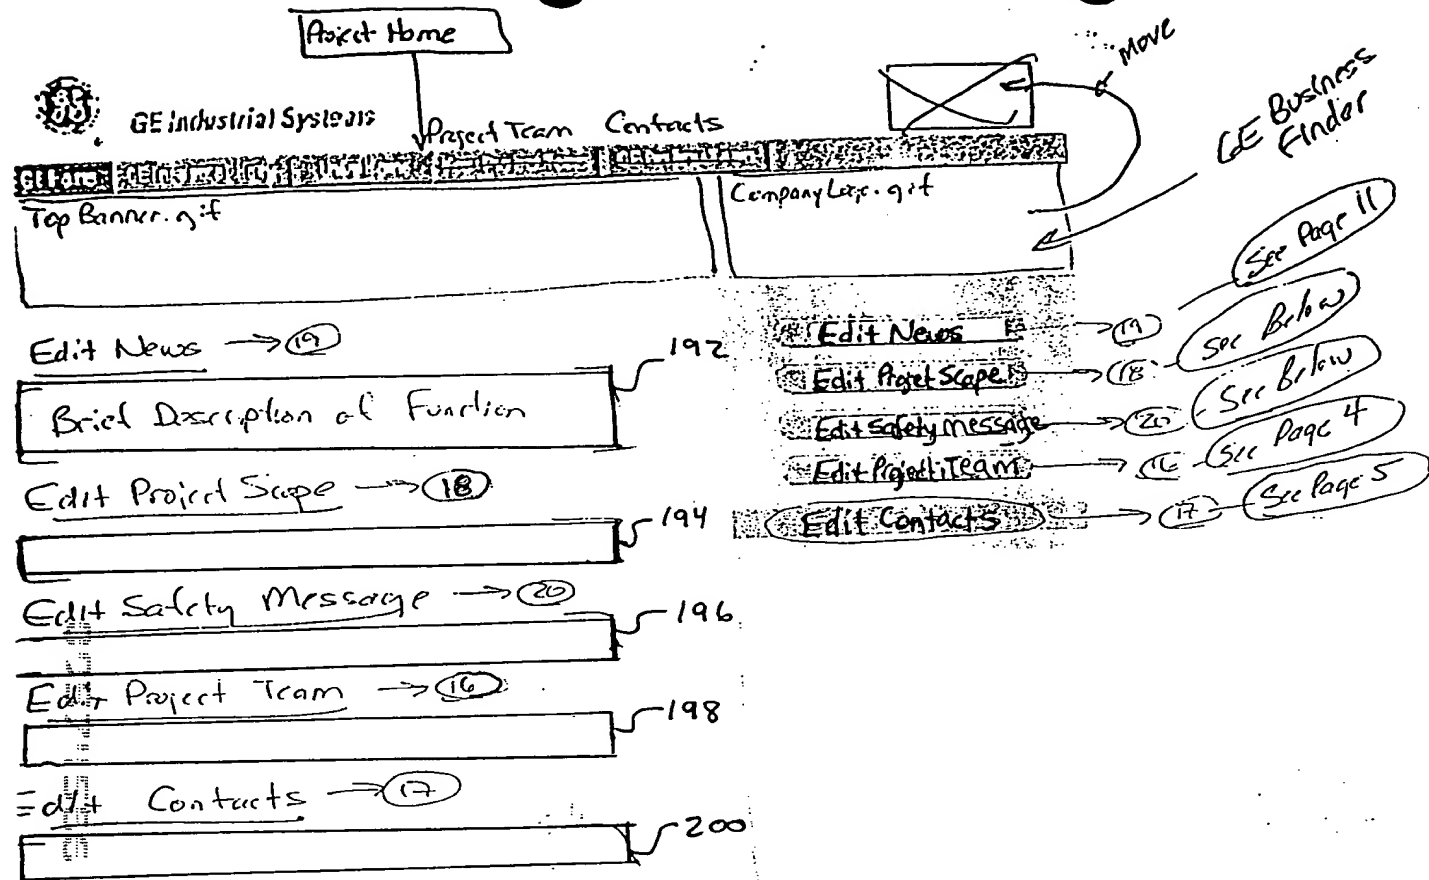 Project Home
Move
GE Business
Finder
GE Industrial Systems
Project Team Contacts
Top Banner.gif
Company Logo.gif
See Page 11
Edit News → 19
192
Brief Description of Function
Edit Project Scope → 18
194
Edit Safety Message → 20
196
Edit Project Team → 16
198
Edit Contacts → 17
200
Edit News → 19
Edit Projet Scope → 18 See Below
Edit Safety Message → 20 See Below
Edit Project Team → 16 See Page 4
Edit Contacts → 17 See Page 5